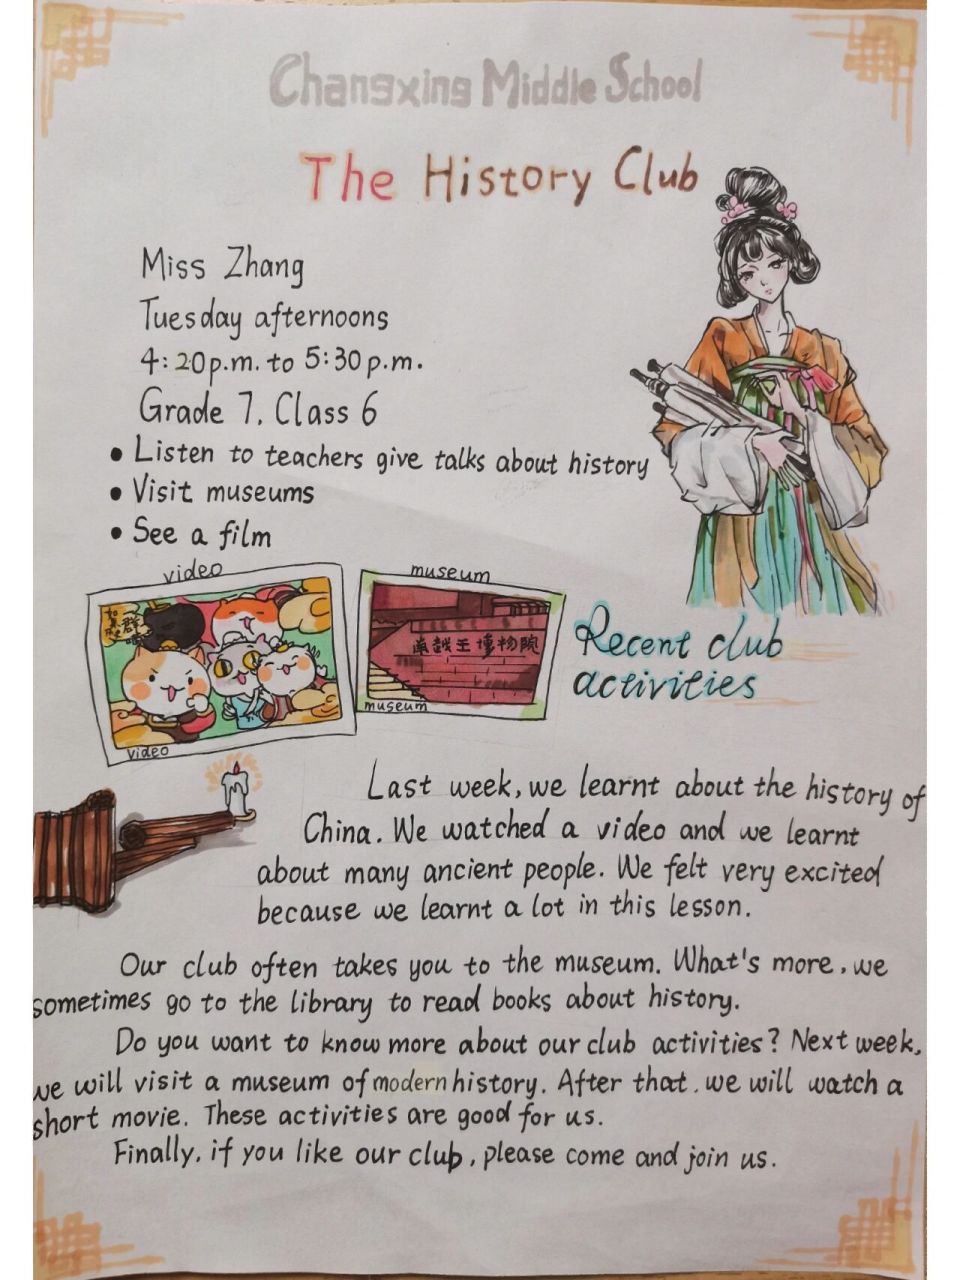 Changxing Middle School
The History Club
Miss Zhang
Tuesday afternoons
4:20p.m. to 5:30p.m.
Grade 7, Class 6
• Listen to teachers give talks about history
• Visit museums
• See a film
video
museum
南越王博物院
museum
video
Recent club
activities
Last week, we learnt about the history of
China. We watched a video and we learnt
about many ancient people. We felt very excited
because we learnt a lot in this lesson.
Our club often takes you to the museum. What's more, we
sometimes go to the library to read books about history.
Do you want to know more about our club activities? Next week,
we will visit a museum of modern history. After that, we will watch a
short movie. These activities are good for us.
Finally, if you like our club, please come and join us.